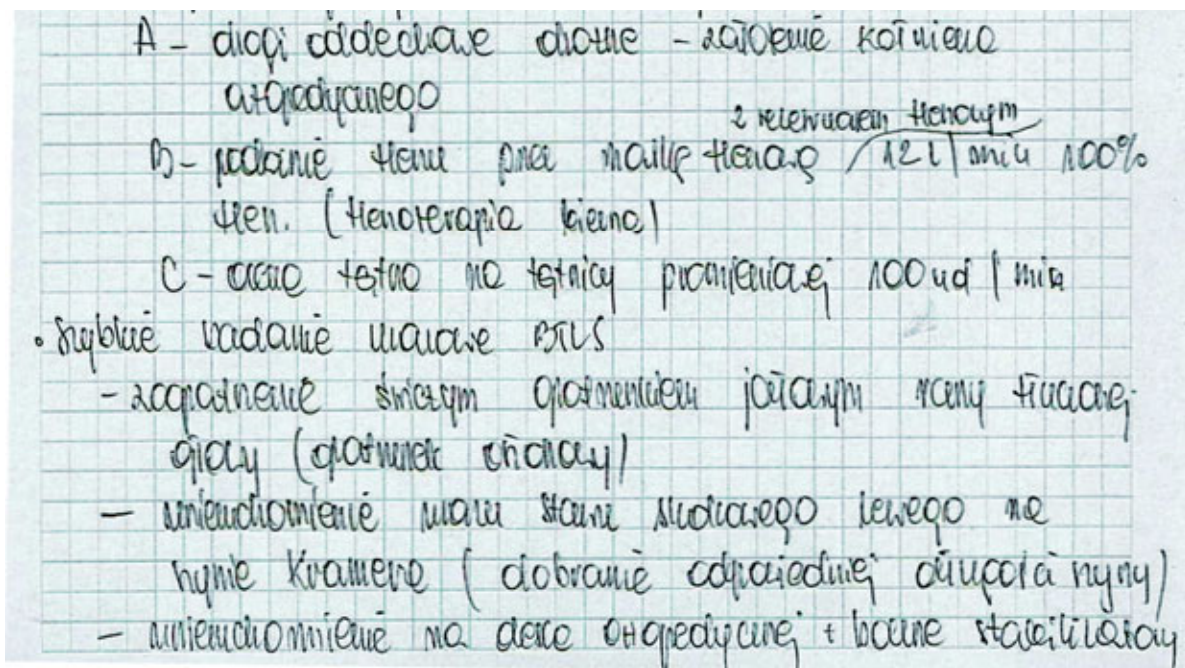 A - drogi oddechowe drożne - założenie kołnierza
ortopedycznego
z rezerwuarem tlenowym
B - podanie tlenu przez maskę tlenową 12 l/min 100%
tlen. (tlenoterapia bierna)
C - ocena tętna na tętnicy promieniowej 100 ud/min
• szybkie badanie urazowe BTLS
- zaopatrzenie świeżym opatrunkiem jałowym rany tłuczonej
głowy (opatrunek osłonowy)
- unieruchomienie urazu stawu skokowego lewego na
szynie Kramera (dobranie odpowiedniej długości szyny)
- unieruchomienie na desce ortopedycznej + boczne stabilizatory